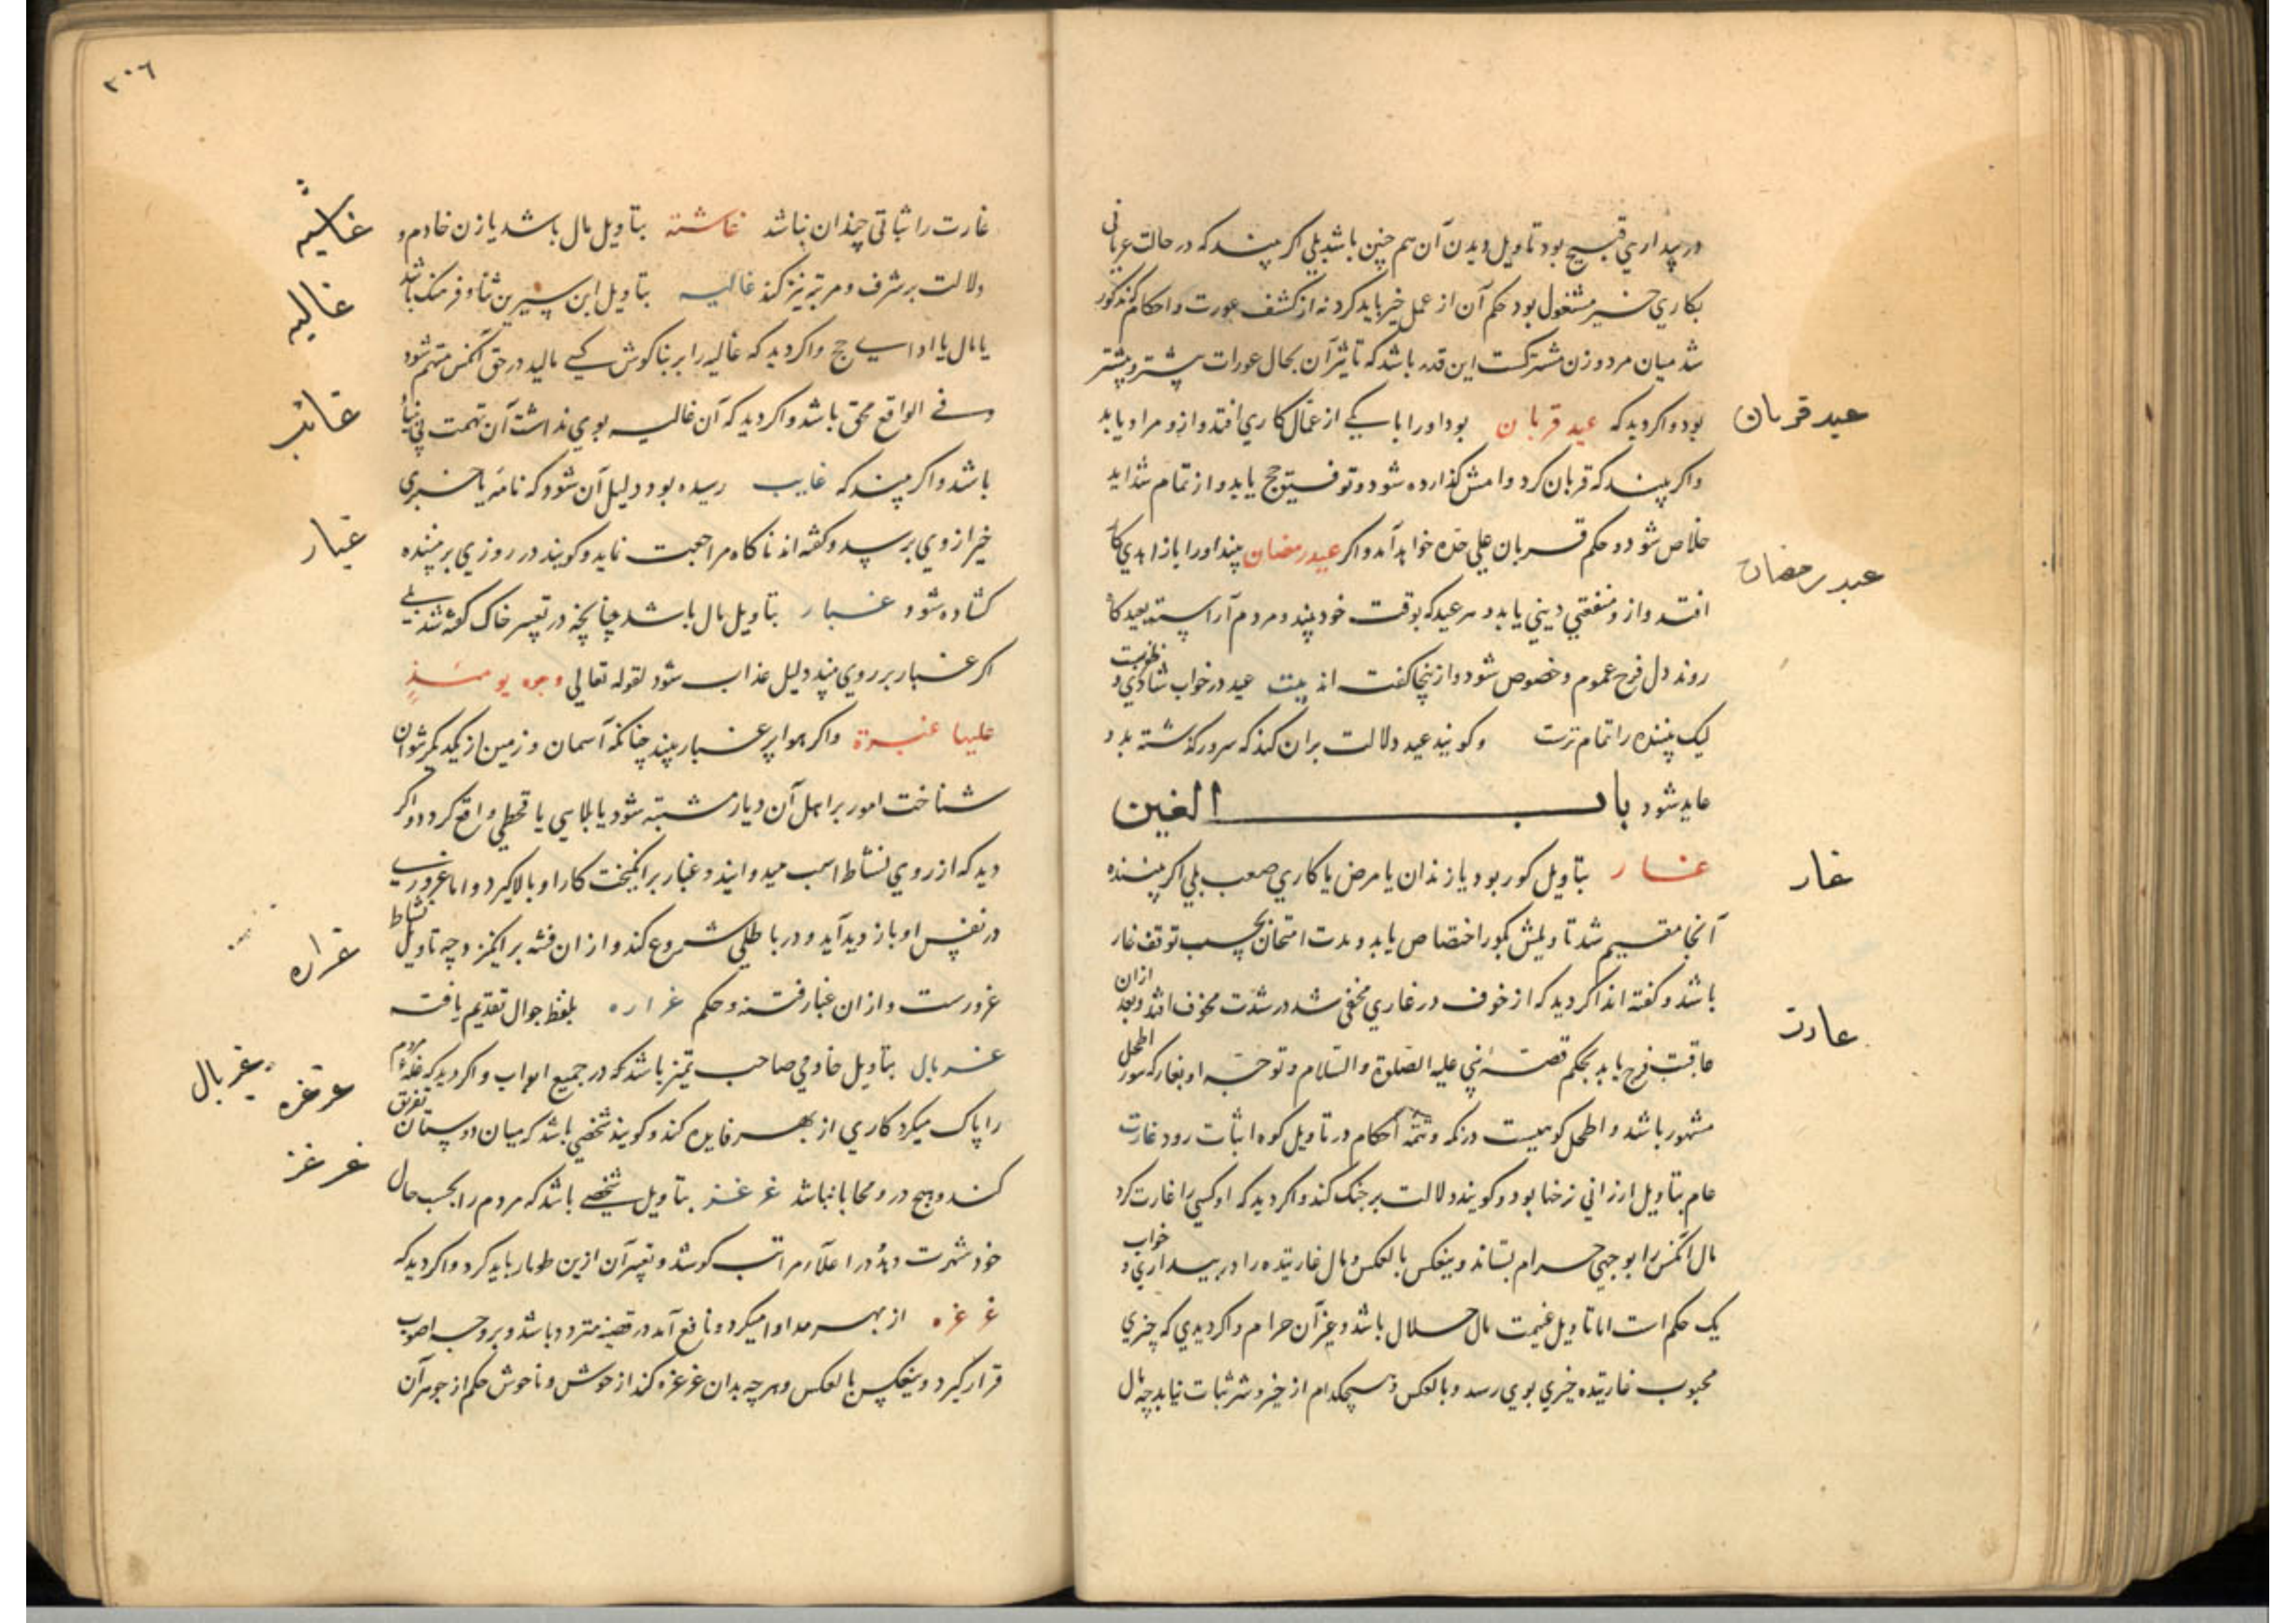 در بیداری قبیح بود تاویل دیدن آن هم چنین باشد بلی اکر بیند که در حالت عریانی
بکاری خیر مشغول بود حکم آن از عمل خیر باید کرد نه از کشف عورت و احکام مذکور
شد میان مرد و زن مشترکست این قدر باشد که تاثیر آن بحال عورات بیشتر و پیشتر
عید قربان
بود و اکر دید که عید قربان بود او را با یکی از عمال کاری افتد و ازو مراد یابد
و اکر بیند که قربان کرد وامش کذارده شود و توفیق حج یابد و از تمام شداید
عید رمضان
خلاص شود و حکم قربان علی حده خواهد آمد و اکر عید رمضان بیند او را با زاهدی کار
افتد و ازو منفعتی دینی یابد و هر عید که بوقت خود بیند و مردم آراسته بعیدکاه
روند دل فرح عموم و خصوص شود و ازینجا کفته اند بیت عید در خواب شادی و طربست
لیک بیننده را تمام ترست و کویند عید دلالت بران کند که سرور کذشته بدو
عاید شود باب الغین
غار
غار بتاویل کور بود یا زندان یا مرض یا کاری صعب بلی اکر بیننده
آنجا مقیم شد تاویلش بکور اختصاص یابد و مدت امتحان بحسب توقف غار
باشد و کفته اند اکر دید که از خوف در غاری مخفی شد در شدت مخوف افتد و بعد ازان
غارت
عاقبت فرح یابد بحکم قصهٔ نبی علیه الصلوة والسلام و توجه او بغار که بثور اطحل
مشهور باشد و اطحل کوهیست در مکه و تتمه احکام در تاویل کوه اثبات رود غارت
عام بتاویل ارزانی نرخها بود و کویند دلالت بر جنک کند و اکر دید که او کسی را غارت کرد
مال آنکس را بوجهی حرام بستاند وینعکس بالعکس و مال غارتیده را در بیداری و خواب
یک حکم است اما تاویل غنیمت مال حلال باشد و غیر آن حرام و اکر دیدی که چیزی
محبوب غارتیده خیری بوی رسد و بالعکس و هیچکدام از خیر و شر ثبات نیابد چه مال
٣٠٦
غاشیه
غارت را ثباتی چندان نباشد غاشیه بتاویل مال باشد یا زن خادم و
غالیه
دلالت بر شرف و مرتبه نیز کند غالیه بتاویل ابن سیرین ثنا و فرهنک باشد
یا مال یا ادای حج و اکر دید که غالیه را بر بناکوش کسی مالید در حق آنکس متهم شود
غائب
و فی الواقع محق باشد و اکر دید که آن غالیه بوی نداشت آن تهمت بی بنیاد
باشد و اکر بیند که غایب رسیده بود دلیل آن شود که نامه یا خبری
غبار
خیر از وی برسد و کفته اند ناکاه مراجعت نماید و کویند در روزی بر بیننده
کشاده شود و غبار بتاویل مال باشد چنانچه در تفسیر خاک کفته شد بلی
اکر غبار بر روی بیند دلیل عذاب شود لقوله تعالی وجوه یومئذٍ
علیها غبرة و اکر هوا پر غبار بیند چنانکه آسمان و زمین از یکدیکر نتوان
شناخت امور بر اهل آن دیار مشتبه شود یا بلایی یا قحطی واقع کردد و اکر
دید که از روی نشاط اسب میدوانید و غبار برانکیخت کار او بالا کیرد و اما غروری
غراره
در نفس او باز دید آید و در باطلی شروع کند و ازان فتنه برانکیزد چه تاویل نشاط
غرورست و ازان غبار فتنه و حکم غراره بلفظ جوال تقدیم یافت
غربال
غرغره
غربال بتاویل خادمی صاحب تمیز باشد که در جمیع ابواب و اکر دید که غلهٔ مردم
را پاک میکرد کاری از بهر فایده کند و کویند شخصی باشد که میان دوستان تفریق
غرغز
کند و هیچ درو محابا نباشد غرغز بتاویل شخصی باشد که مردم را بحسب حال
خود شهرت دهد و در اعلاء مراتب کوشد و تعبیر آن ازین طومار باید کرد و اکر دید که
غرغره از بهر مداوا میکرد و نافع آمد در قضیه متردد باشد و بر وجه اصوب
قرار کیرد وینعکس بالعکس و هر چه بدان غرغره کند از خوش و ناخوش حکم از جوهر آن